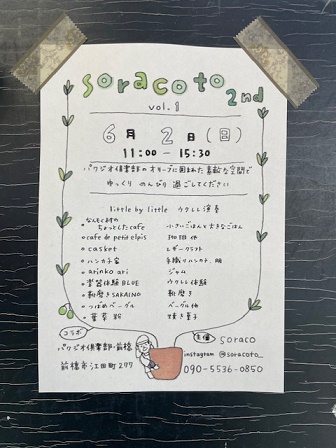 soracoto 2nd
vol.1
6月2日(日)
11:00 — 15:30
パワジオ倶楽部のオリーブに囲まれた素敵な空間で
ゆっくり のんびり 過ごしてください
little by little ウクレレ演奏
なんもくまの
ちょっとしたcafe 小さいごはんと大きなごはん
cafe de petit elpis 珈琲 他
casket レザークラフト
ハンカチ家 手織りハンカチ、他
arinko ari ジャム
楽器体験BLUE ウクレレ体験
靴磨きSAKAINO 靴磨き
つばめベーグル ベーグル 他
焼き菓子
コラボ
パワジオ倶楽部・前橋
前橋市江田町277
主催 soraco
instagram @soracoto_
090-5536-0850